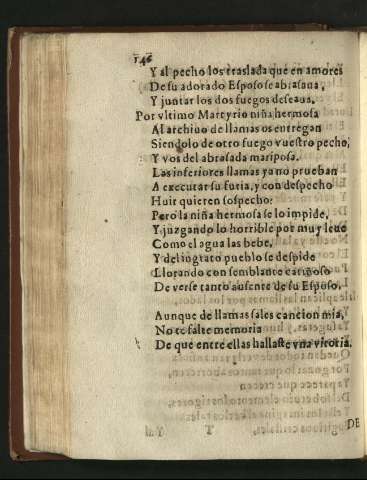 146
Y al pecho los traslada que en amores
De su adorado Esposo se abrasaua,
Y juntar los dos fuegos deseaua.
Por vltimo Martyrio niña hermosa
Al archiuo de llamas os entregan
Siendolo de otro fuego vuestro pecho,
Y vos del abrasada mariposa.
Las inferiores llamas ya no prueban
A executar su furia, y con despecho
Huir quieren sospecho:
Pero la niña hermosa se lo impide,
Y juzgando lo horrible por muy leue
Como el agua las bebe,
Y del ingrato pueblo se despide
Llorando con semblante cariñoso
De verse tanto ausente de su Esposo.
Aunque de llamas sales cancion mia,
No te falte memoria
De que entre ellas hallaste vna vitoria.
DE